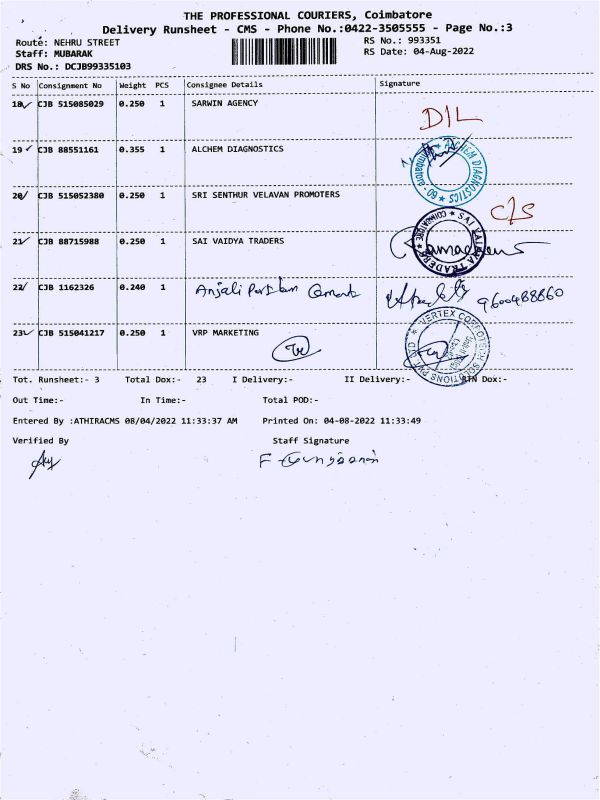 THE PROFESSIONAL COURIERS, Coimbatore
Delivery Runsheet - CMS - Phone No.:0422-3505555 - Page No.:3
Route: NEHRU STREET
RS No.: 993351
Staff: MUBARAK
RS Date: 04-Aug-2022
DRS No.: DCJB99335103
S No Consignment No Weight PCS Consignee Details Signature
18 CJB 515085029 0.250 1 SARWIN AGENCY
D/L
19 CJB 88551161 0.355 1 ALCHEM DIAGNOSTICS
ALCHEM DIAGNOSTICS
20 CJB 515052380 0.250 1 SRI SENTHUR VELAVAN PROMOTERS
C/S
21 CJB 88715988 0.250 1 SAI VAIDYA TRADERS
COIMBATORE * SAI VAIDYA TRADERS
22 CJB 1162326 0.240 1 Anjali Cement 9600488860
23 CJB 515041217 0.250 1 VRP MARKETING
VERTEX SOLUTIONS PVT
Tot. Runsheet:- 3 Total Dox:- 23 I Delivery:- II Delivery:- RTN Dox:-
Out Time:- In Time:- Total POD:-
Entered By :ATHIRACMS 08/04/2022 11:33:37 AM Printed On: 04-08-2022 11:33:49
Verified By Staff Signature